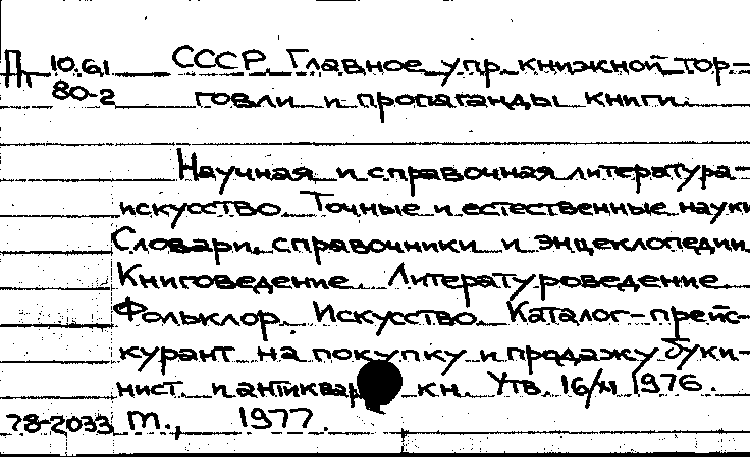 П 10.61 СССР. Главное упр. книжной тор-
80-2 говли и пропаганды книги.
Научная и справочная литература-
искусство. Точные и естественные науки
Словари, справочники и энциклопедии.
Книговедение. Литературоведение.
Фольклор. Искусство. Каталог-прейс-
курант на покупку и продажу буки-
нист. и антиквар кн. Утв. 16/XI 1976.
78-2033 М., 1977.